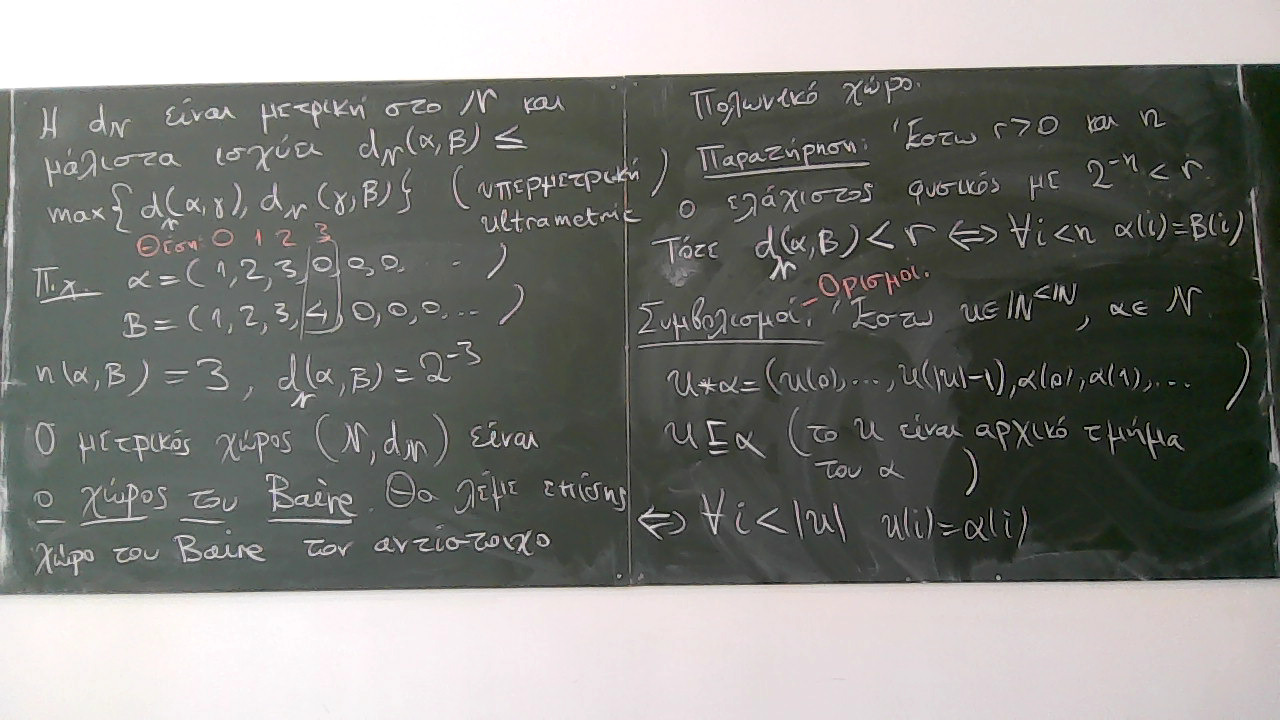 Η d𝒩 είναι μετρική στο 𝒩 και
μάλιστα ισχύει d𝒩(α, β) ≤
max{d𝒩(α, γ), d𝒩(γ, β)} (υπερμετρική
ultrametric)
Θέση: 0 1 2 3
Π.χ. α = (1, 2, 3, 0, 0, 0, ...)
β = (1, 2, 3, 4, 0, 0, 0, ...)
n(α, β) = 3, d𝒩(α, β) = 2⁻³
Ο μετρικός χώρος (𝒩, d𝒩) είναι
ο χώρος του Baire. Θα λέμε επίσης
χώρο του Baire τον αντίστοιχο
Πολωνικό χώρο.
Παρατήρηση: Έστω r > 0 και n
ο ελάχιστος φυσικός με 2⁻ⁿ < r.
Τότε d𝒩(α, β) < r ⇔ ∀i < n α(i) = β(i)
Συμβολισμοί - Ορισμοί. Έστω u ∈ ℕ^<ℕ, α ∈ 𝒩
u * α = (u(0), ..., u(|u|-1), α(0), α(1), ... )
u ⊑ α (το u είναι αρχικό τμήμα
του α)
⇔ ∀i < |u| u(i) = α(i)